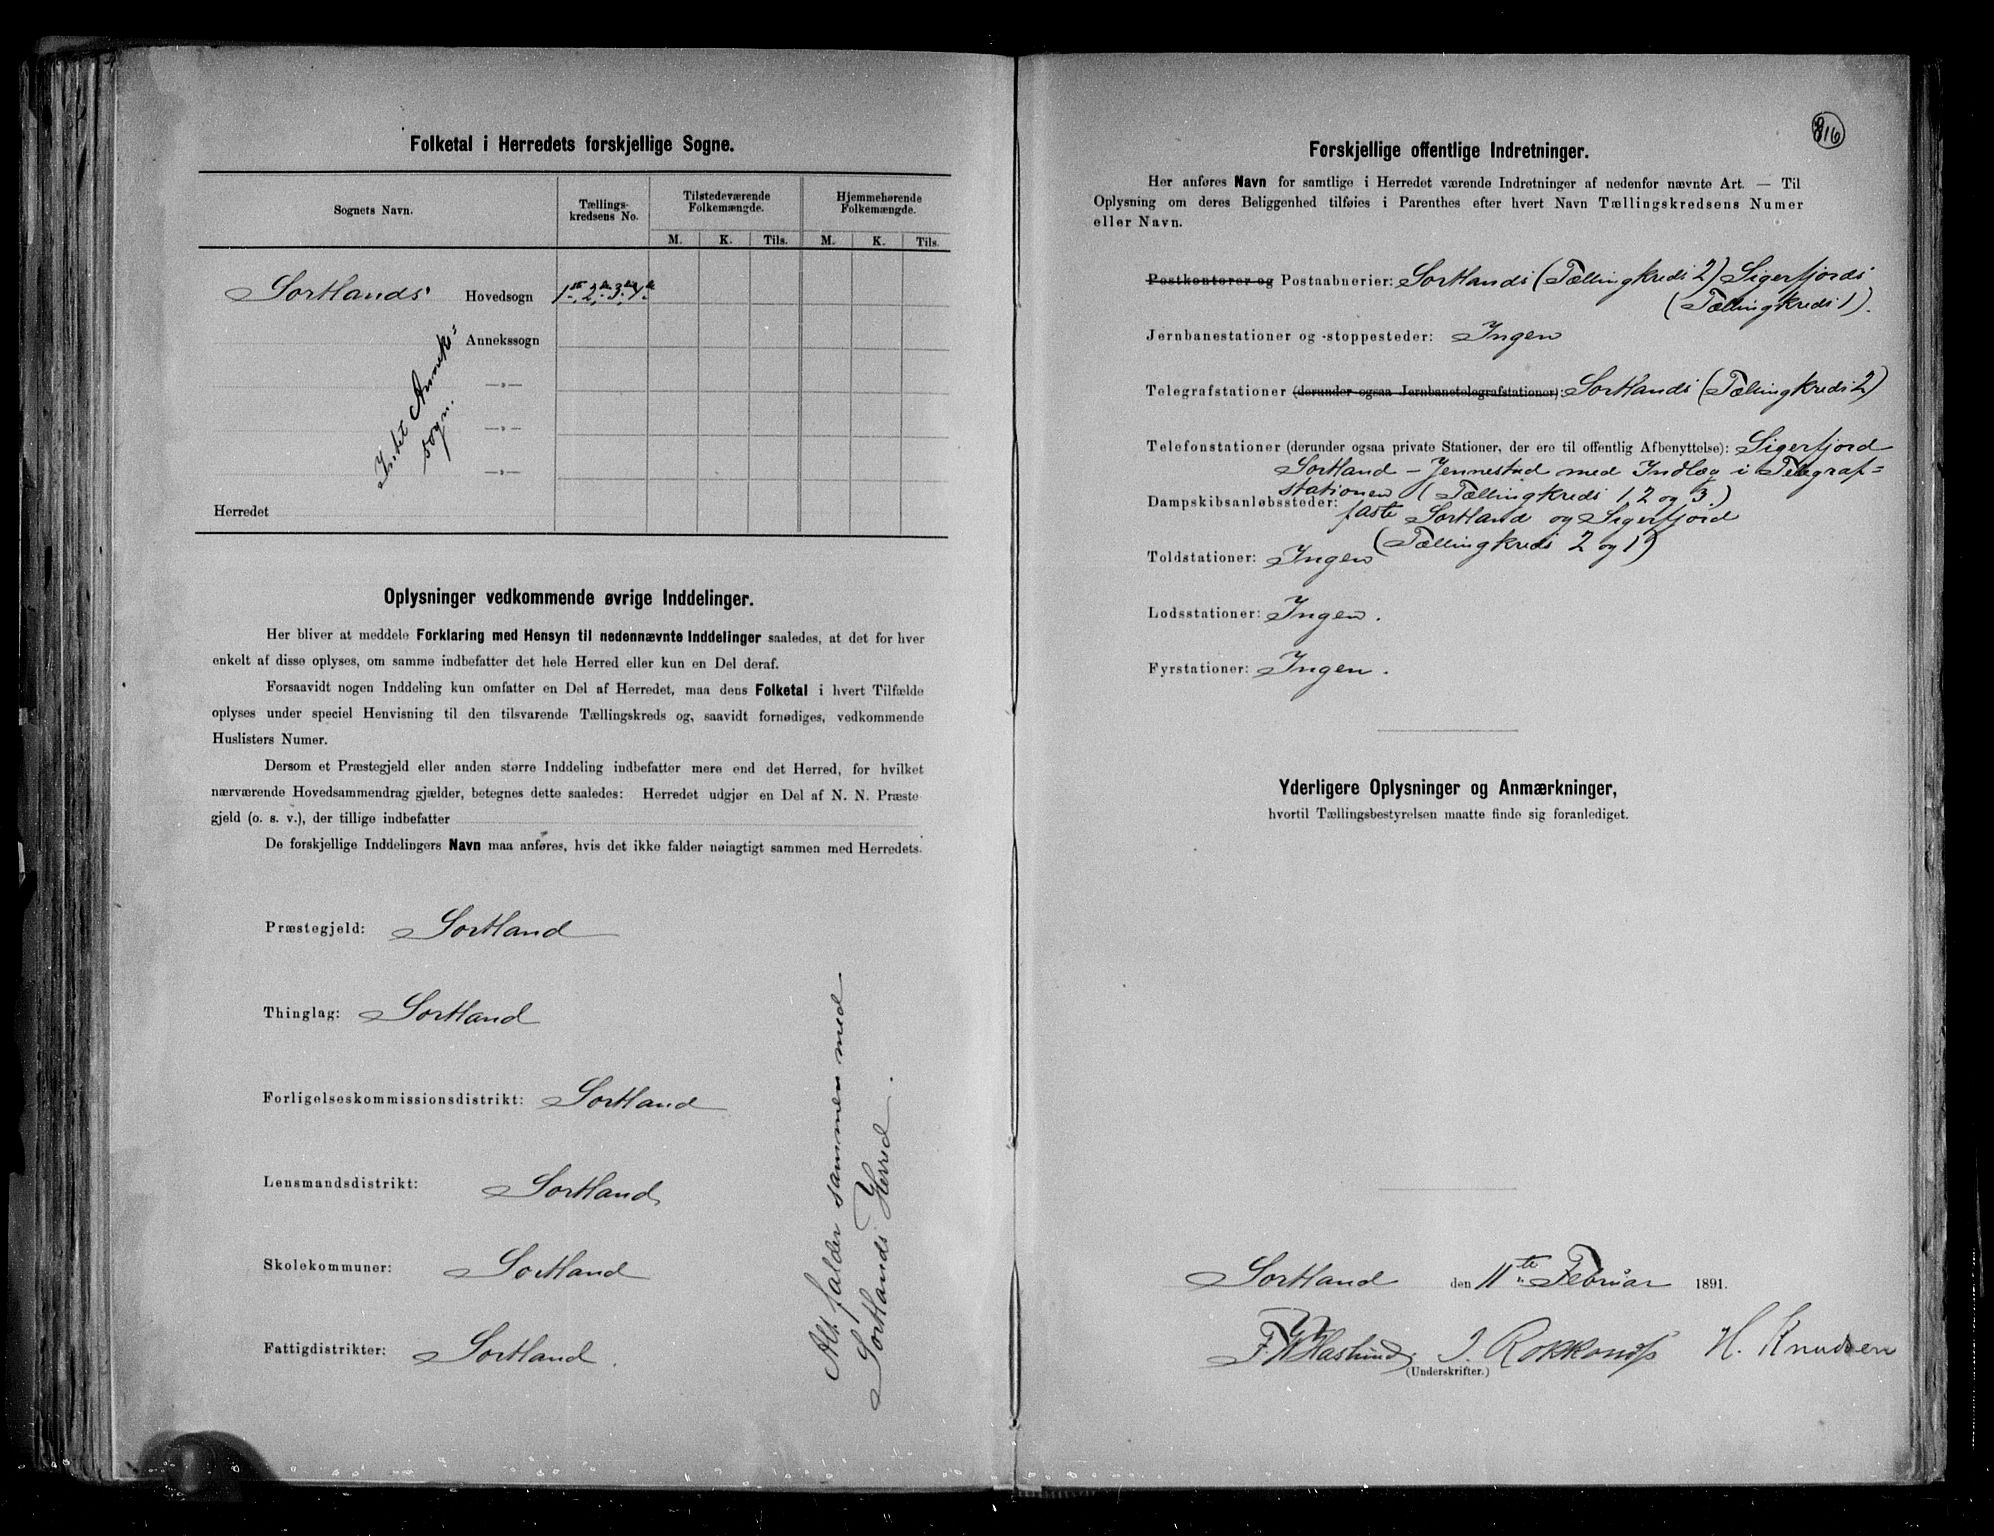 Folketal i Herredets forskjellige Sogne.
Sognets Navn.
Tællings-
kredsens No.
Tilstedeværende
Folkemængde.
Hjemmehørende
Folkemængde.
M. K. Tils. M. K. Tils.
Sortlands Hovedsogn 1ste, 2de, 3die, 4de
Annekssogn
—„—
—„—
—„—
Intet Anneks=
sogn.
Herredet
Oplysninger vedkommende øvrige Inddelinger.
Her bliver at meddele Forklaring med Hensyn til nedennævnte Inddelinger saaledes, at det for hver
enkelt af disse oplyses, om samme indbefatter det hele Herred eller kun en Del deraf.
Forsaavidt nogen Inddeling kun omfatter en Del af Herredet, maa dens Folketal i hvert Tilfælde
oplyses under speciel Henvisning til den tilsvarende Tællingskreds og, saavidt fornødiges, vedkommende
Huslisters Numer.
Dersom et Præstegjeld eller anden større Inddeling indbefatter mere end det Herred, for hvilket
nærværende Hovedsammendrag gjælder, betegnes dette saaledes: Herredet udgjør en Del af N. N. Præste-
gjeld (o. s. v.), der tillige indbefatter
De forskjellige Inddelingers Navn maa anføres, hvis det ikke falder nøiagtigt sammen med Herredets.
Præstegjeld: Sortland
Thinglag: Sortland
Forligelseskommissionsdistrikt: Sortland
Lensmandsdistrikt: Sortland
Skolekommuner: Sortland
Fattigdistrikter: Sortland.
Alt falder sammen med
Sortlands Herred.
916
Forskjellige offentlige Indretninger.
Her anføres Navn for samtlige i Herredet værende Indretninger af nedenfor nævnte Art. — Til
Oplysning om deres Beliggenhed tilføies i Parenthes efter hvert Navn Tællingskredsens Numer
eller Navn.
Postkontorer og Postaabnerier: Sortlands (Tællingkreds 2) Sigerfjords
(Tællingkreds 1).
Jernbanestationer og -stoppesteder: Ingen
Telegrafstationer (derunder ogsaa Jernbanetelegrafstationer): Sortlands (Tællingkreds 2)
Telefonstationer (derunder ogsaa private Stationer, der ere til offentlig Afbenyttelse): Sigerfjord
Sortland – Jennestad med Indlæg i Telegraf=
stationen (Tællingkreds 1, 2 og 3.)
Dampskibsanløbssteder: faste Sortland og Sigerfjord
(Tællingkreds 2 og 1)
Toldstationer: Ingen
Lodsstationer: Ingen.
Fyrstationer: Ingen.
Yderligere Oplysninger og Anmærkninger,
hvortil Tællingsbestyrelsen maatte finde sig foranlediget.
Sortland den 11te Februar 1891.
Haslund H. Knudsen
(Underskrifter.)